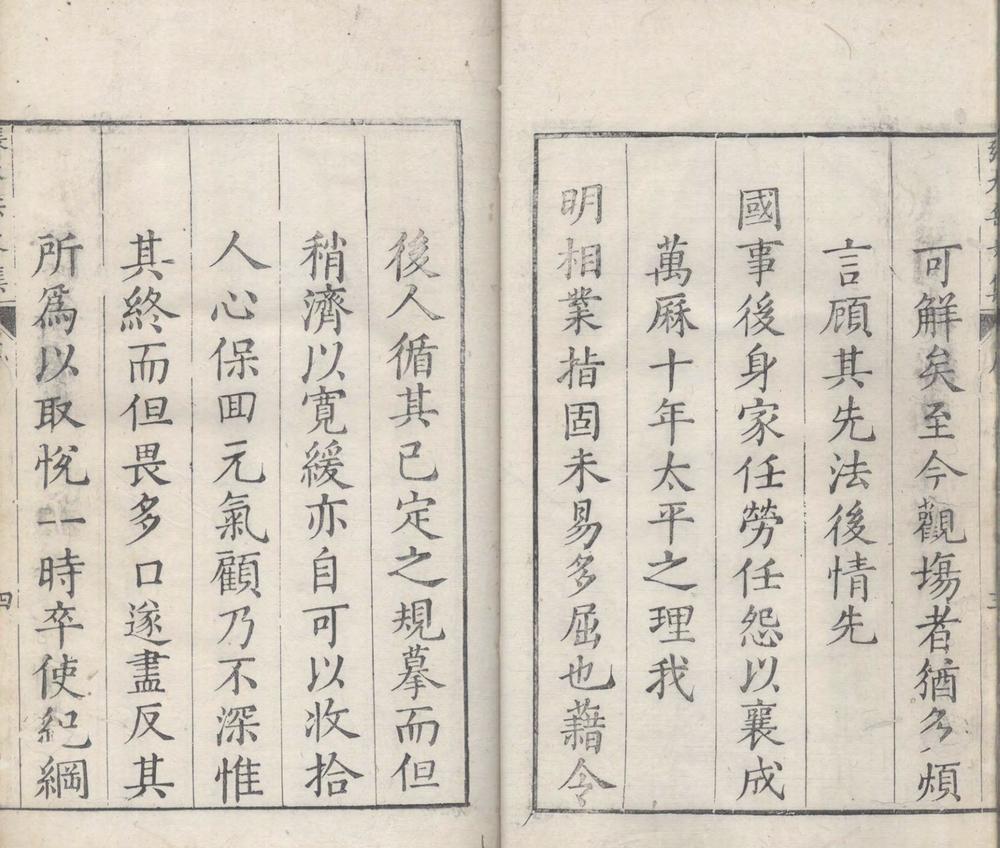 可解矣至今觀塲者猶多煩
言顧其先法後情先
國事後身家任勞任怨以襄成
萬厤十年太平之理我
明相業指固未易多屈也藉令
後人循其已定之規摹而但
稍濟以寬緩亦自可以收拾
人心保囬元氣顧乃不深惟
其終而但畏多口遂盡反其
所爲以取恱一時卒使紀綱
四